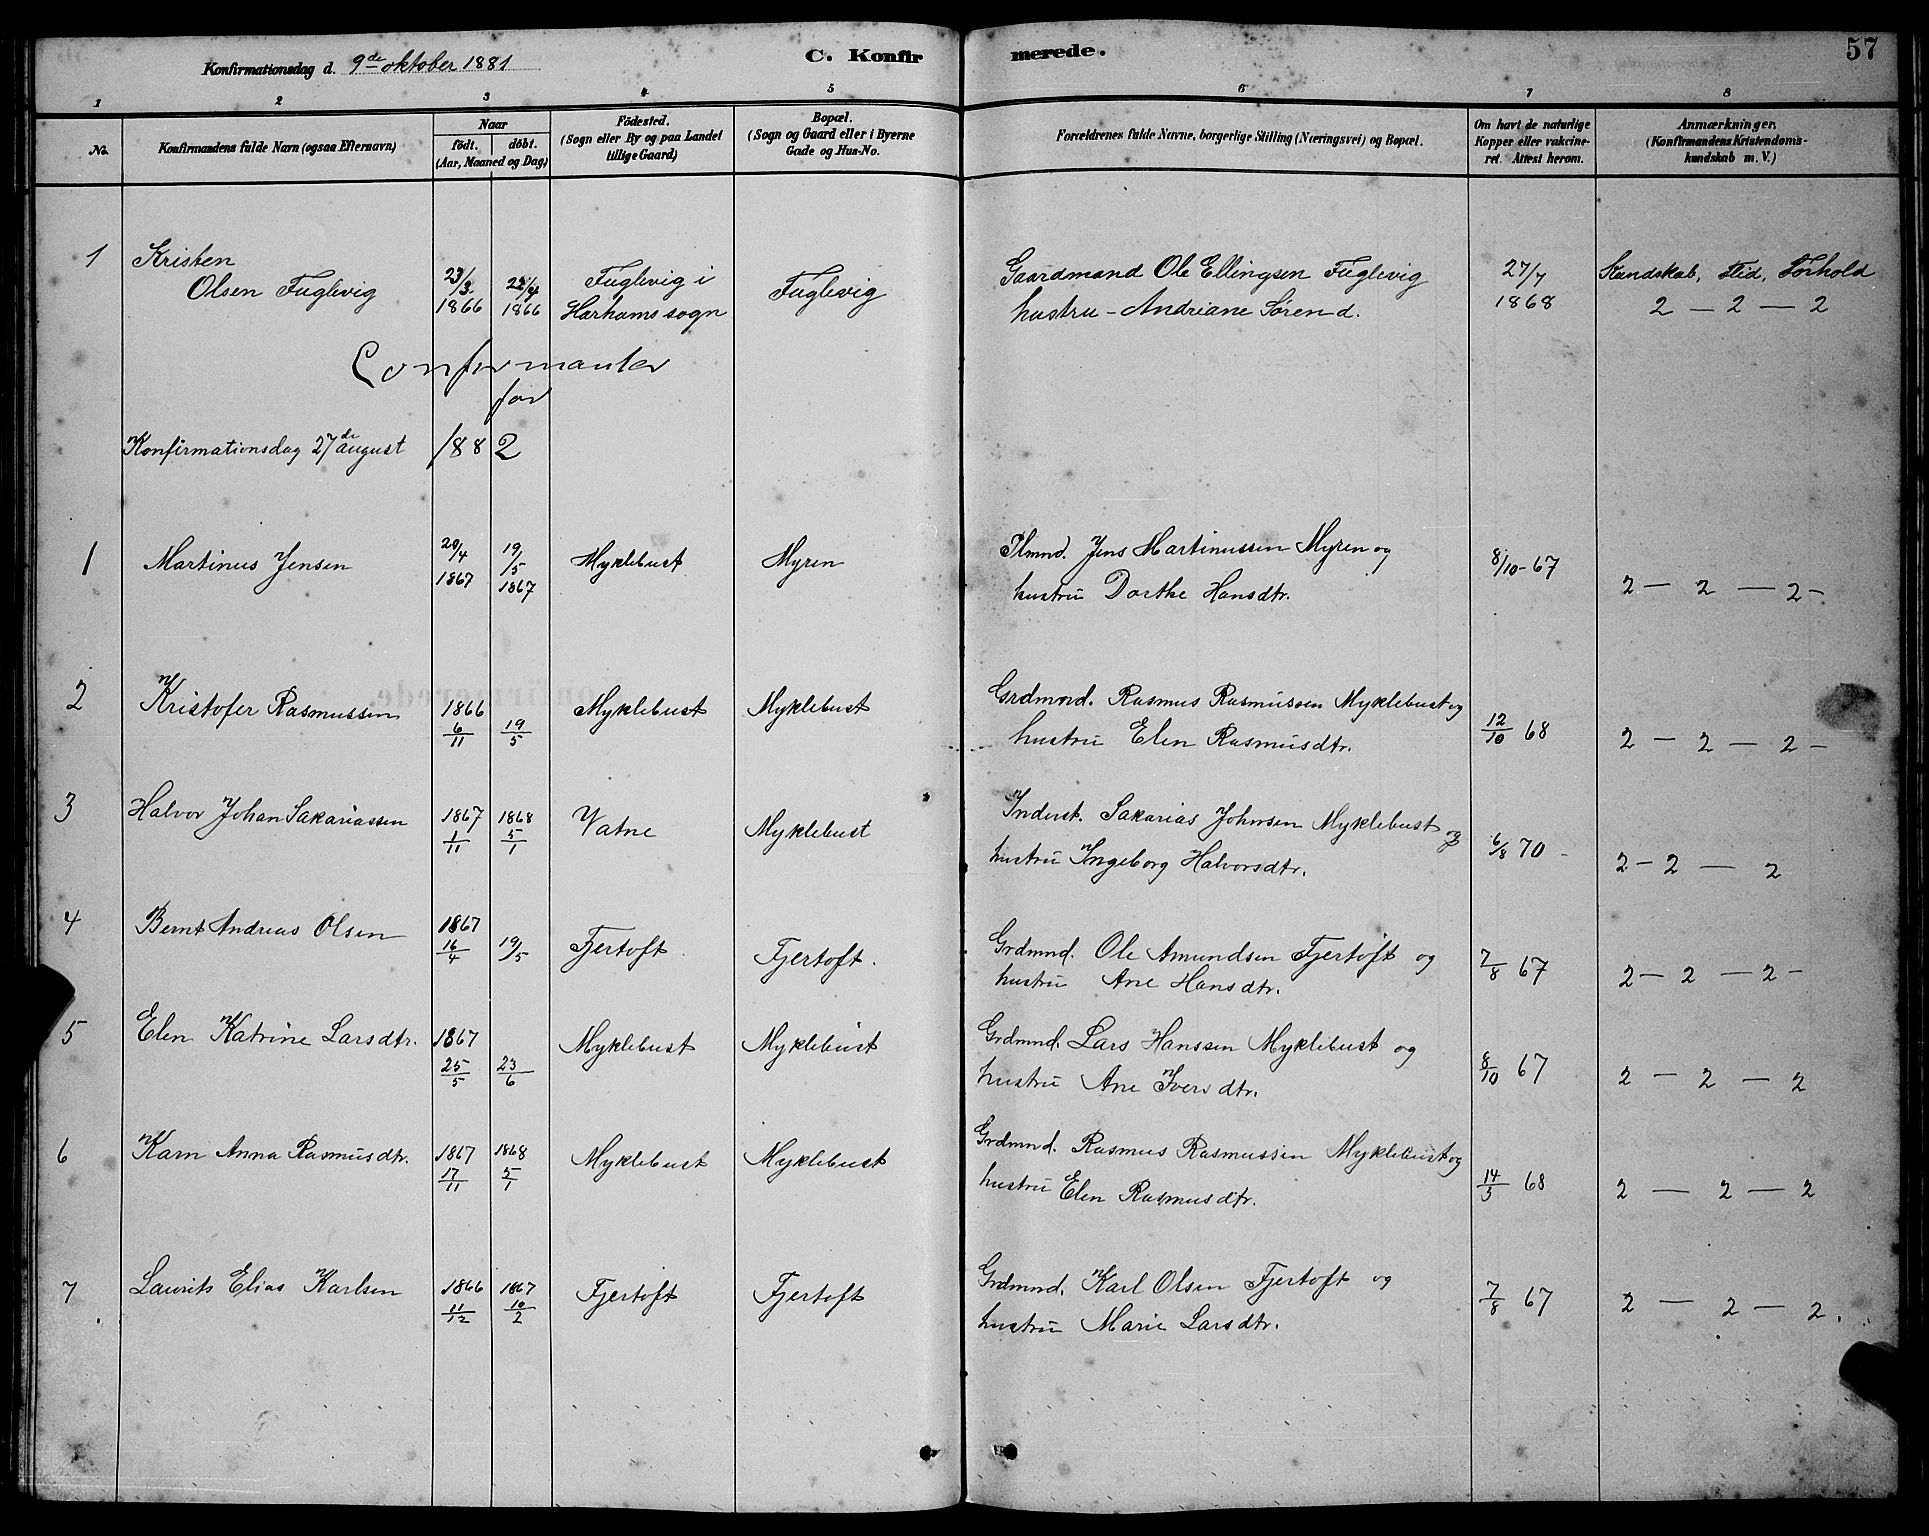 Konfirmationsdag d. 9de oktober 1881
C. Konfirmerede.
57
1 2 3 4 5 6 7 8
No.
Konfirmandens fulde Navn (ogsaa Efternavn)
Naar
födt. döbt.
(Aar, Maaned og Dag)
Födested.
(Sogn eller By og paa Landet
tillige Gaard)
Bopæl.
(Sogn og Gaard eller i Byerne
Gade og Hus-No.
Forældrenes fulde Navne, borgerlige Stilling (Næringsvei) og Bopæl.
Om havt de naturlige
Kopper eller vakcine-
ret. Attest herom.
Anmærkninger.
(Konfirmandens Kristendoms-
kundskab m. V.)
1 Kristen
Olsen Fuglevig
23/3 1866
22/4 1866
Fuglevig i
Harhams sogn
Fuglevig
Gaardmand Ole Ellingsen Fuglevig
hustru - Andriane Sørend.
27/7
1868
Kundskab, Flid, Forhold
2 — 2 — 2
Confirmanter
for
Konfirmationsdag 27de august 1882
1 Martinus Jensen
20/4 1867
19/5 1867
Myklebust
Myren
Plmnd. Jens Martinussen Myren og
hustru Dorthe Hansdtr.
8/10-67
2 — 2 — 2 -
2 Kristofer Rasmussen
1866 6/11
19/5
Myklebust
Myklebust
Grdmnd. Rasmus Rasmussen Myklebust og
hustru Elen Rasmusdtr.
12/10 68
2 — 2 — 2 -
3 Halvor Johan Sakariassen
1867 1/11
1868 5/1
Vatne
Myklebust
Inderst. Sakarias Johnsen Myklebust og
hustru Ingeborg Halvorsdtr.
6/8 70 -
2 - 2 — 2
4 Bernt Andreas Olsen
1867 16/4
19/5
Fjertoft.
Fjertoft.
Grdmnd. Ole Amundsen Fjertoft og
hustru Ane Hansdtr.
7/8 67
2 — 2 — 2 -
5 Elen Katrine Larsdtr.
1867 25/5
23/6
Myklebust
Myklebust
Grdmnd. Lars Hanssen Myklebust og
hustru Ane Iversdtr.
8/10 67
2 — 2 — 2
6 Karn Anna Rasmusdtr.
1867 17/11
1868 5/1
Myklebust
Myklebust
Grdmnd. Rasmus Rasmussen Myklebust og
hustru Elen Rasmusdtr.
14/5 68
2 — 2 — 2
7 Laurits Elias Karlsen
1866 11/12
1867 10/2
Fjertoft
Fjertoft
Grdmnd. Karl Olsen Fjertoft og
hustru Marie Larsdtr.
7/8 67
2 — 2 — 2.